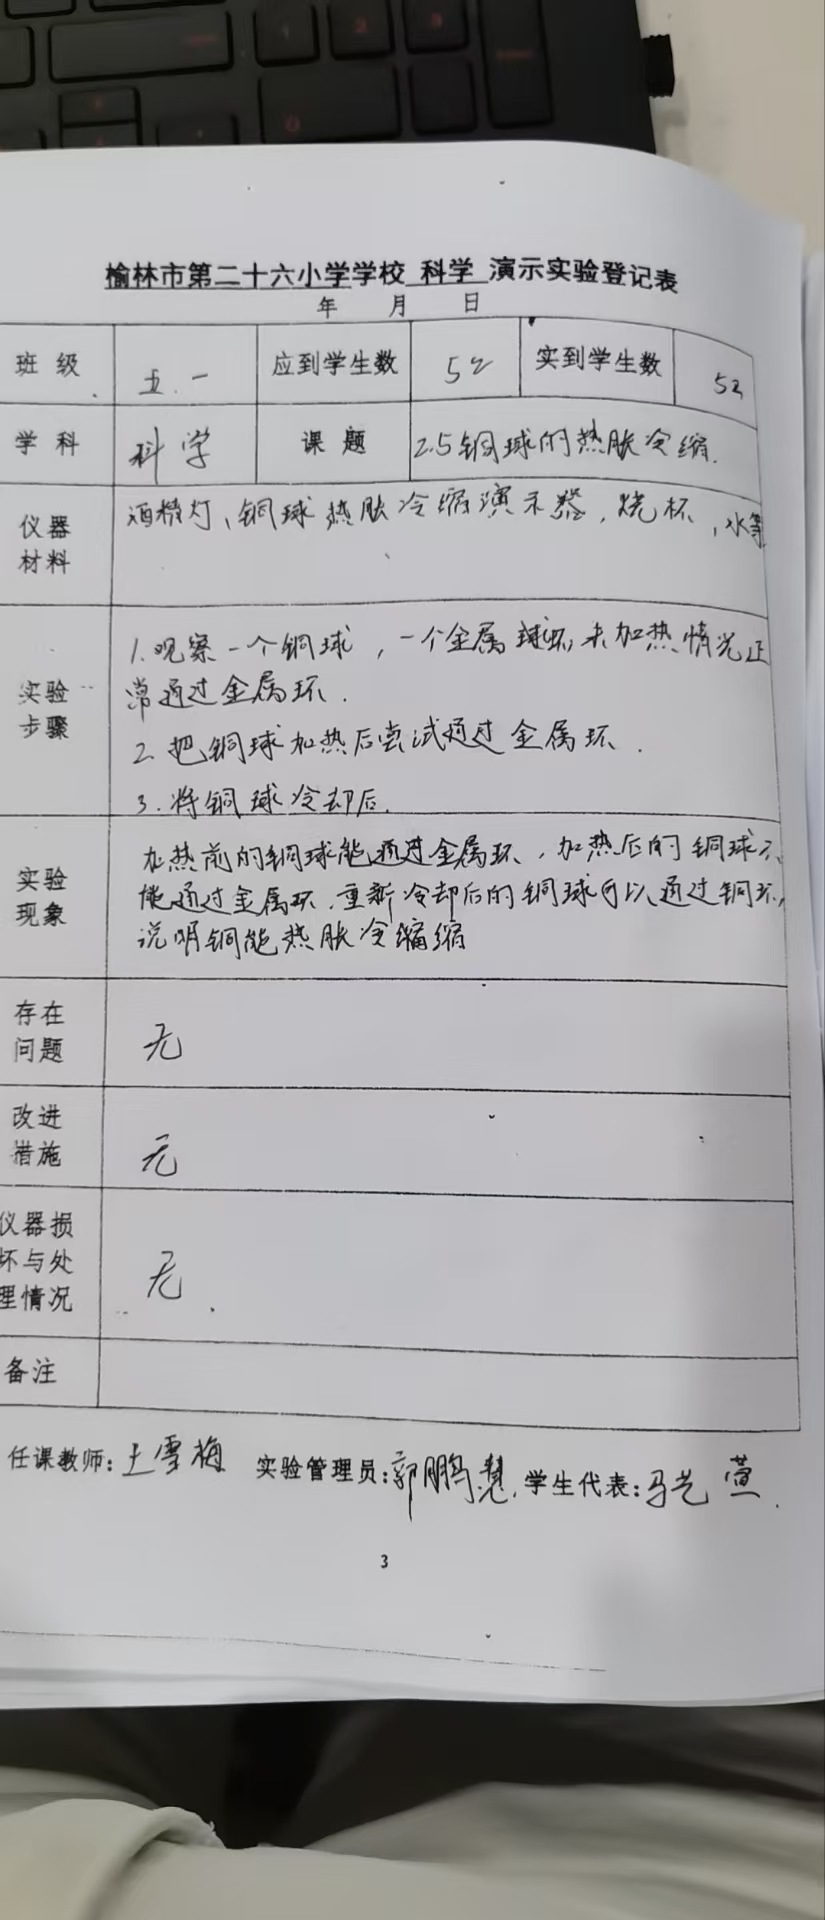 榆林市第二十六小学学校 科学 演示实验登记表
年 月 日
班级 五.一 应到学生数 52 实到学生数 52
学科 科学 课题 2.5铜球的热胀冷缩.
仪器材料 酒精灯、铜球热胀冷缩演示器,烧杯,水等
实验步骤
1.观察一个铜球,一个金属球环,未加热情况正
常通过金属环.
2.把铜球加热后尝试通过金属环.
3.将铜球冷却后.
实验现象
加热前的铜球能通过金属环、加热后的铜球不
能通过金属环.重新冷却后的铜球可以通过铜环,
说明铜能热胀冷缩缩
存在问题 无
改进措施 无
仪器损坏与处理情况 无.
备注
任课教师:王雪梅 实验管理员:郭鹏慧.学生代表:马艺萱.
3